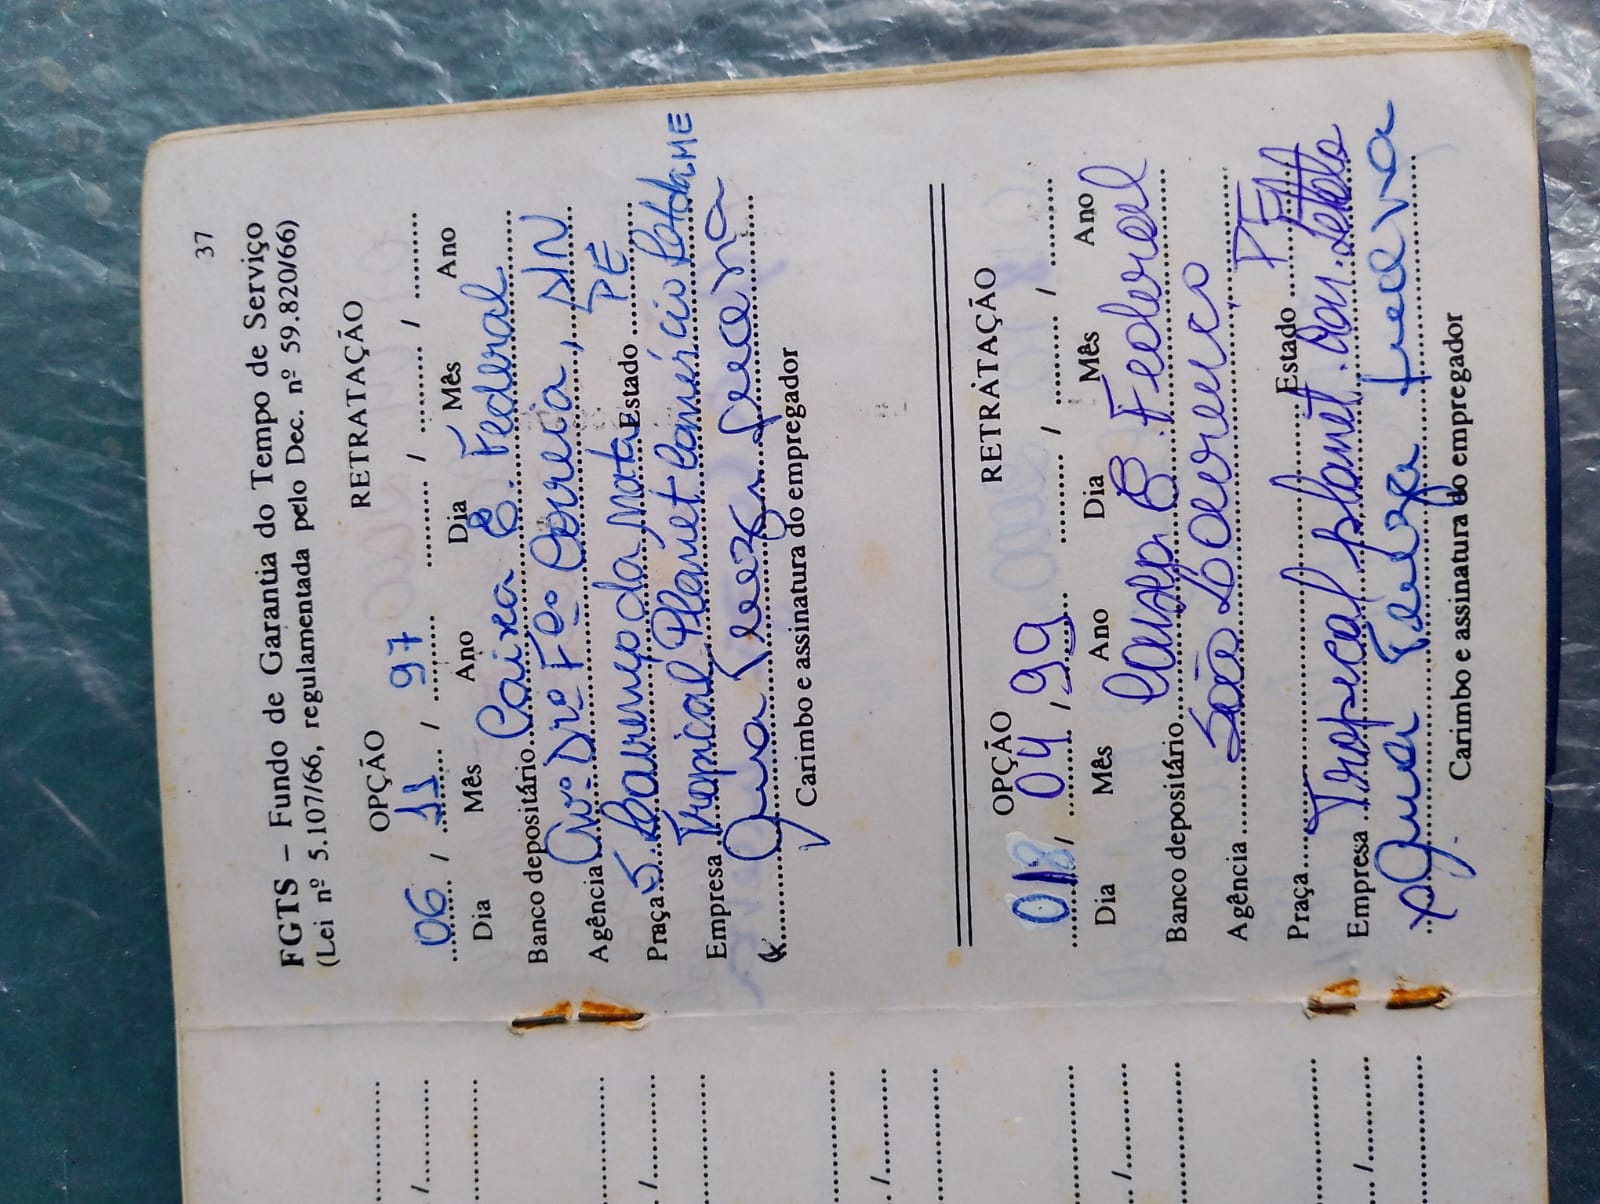 37
FGTS – Fundo de Garantia do Tempo de Serviço
(Lei nº 5.107/66, regulamentada pelo Dec. nº 59.820/66)
OPÇÃO RETRATAÇÃO
06 / 11 / 97 ........ / ........ / ........
Dia Mês Ano Dia Mês Ano
Banco depositário Caixa E. Federal
Agência Av. Dr. Fco Correia,
Praça S. Lourenço da Mata Estado PE
Empresa Tropical Planet Comércio
Carimbo e assinatura do empregador
OPÇÃO RETRATAÇÃO
01 / 04 / 99 ........ / ........ / ........
Dia Mês Ano Dia Mês Ano
Banco depositário E. Federal
Agência São Lourenço
Praça Estado PE
Empresa Tropical planet.
Carimbo e assinatura do empregador